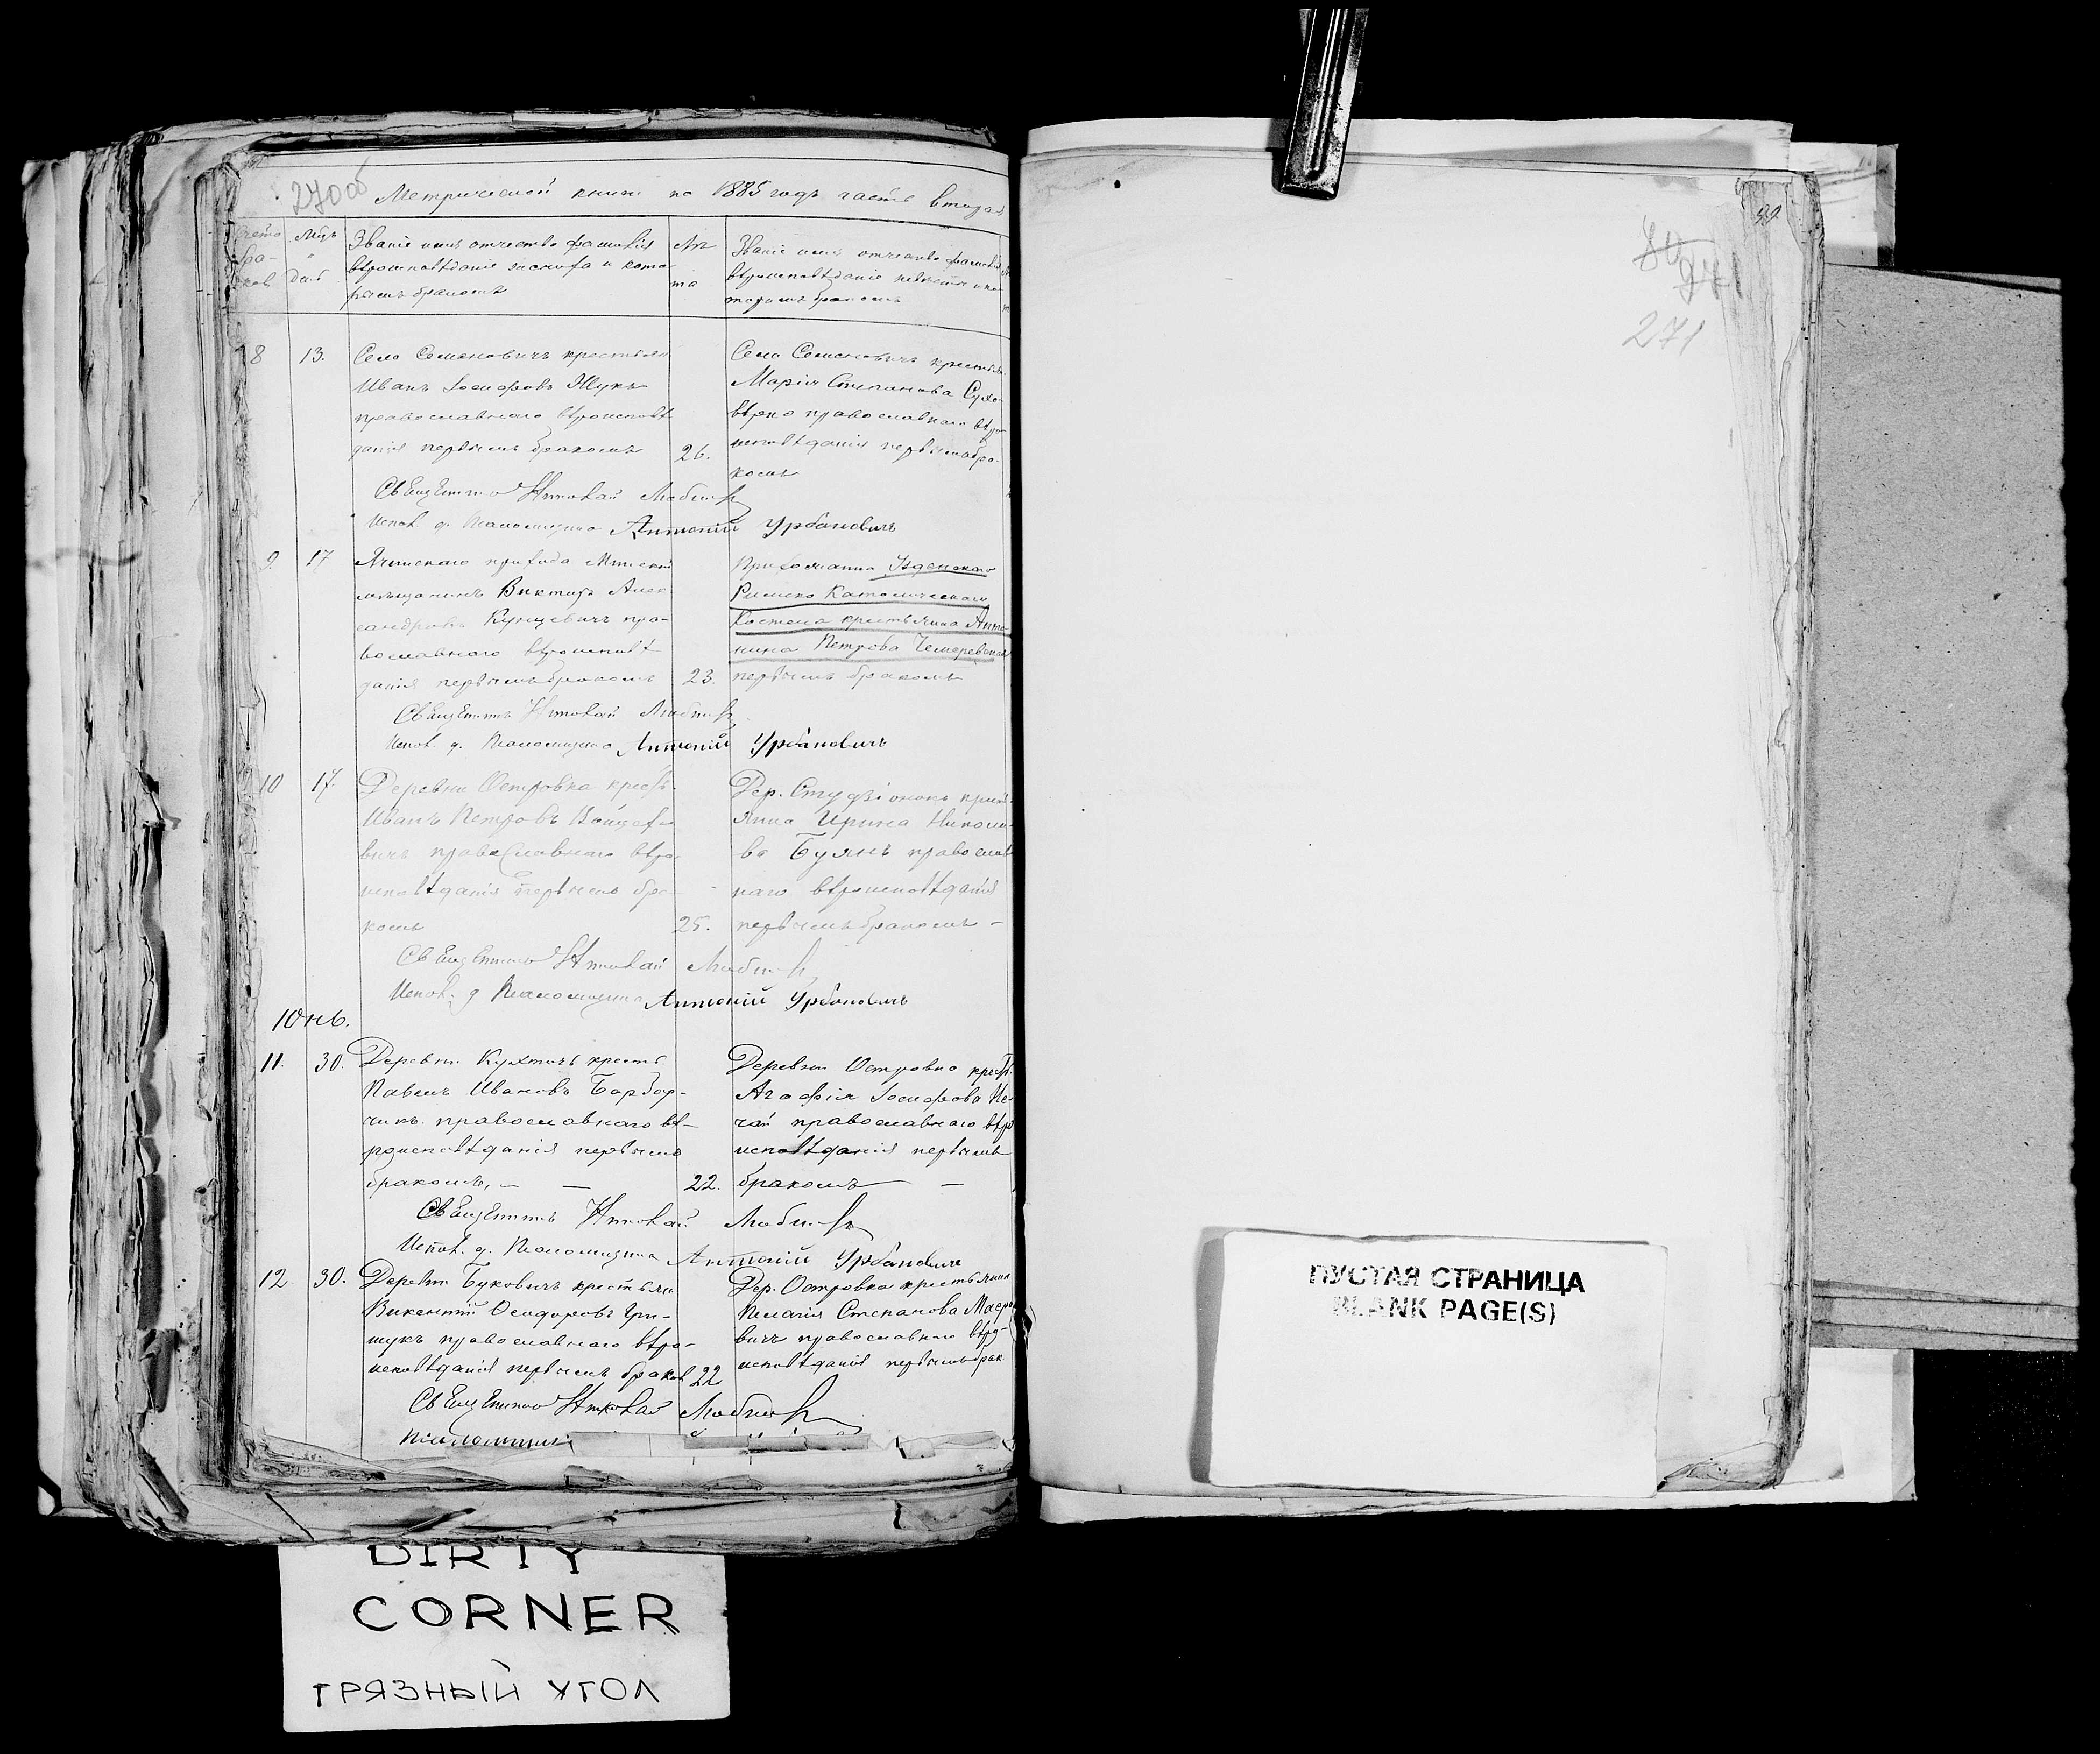 270об
Метрической книги на 1885 годъ часть вторая
Счетъ бра-ковъ
Мцъ и день
Званіе имя отчество фамилія
вѣроисповѣданіе жениха и кото-
рымъ бракомъ
Лѣ
та
Званіе имя отчество фамилія
вѣроисповѣданіе невѣсты и ко-
торымъ бракомъ
8 13. Село Семеновичъ крестьян
Иванъ Іосифовъ Жукъ
православнаго вѣроисповѣ
данія первымъ бракомъ
26.
Село Семеновичъ крестьян.
Марія Степанова Сухо-
вѣрко православнаго вѣро-
исповѣданія первымъ бра-
комъ
Священникъ Николай
Испол. д. Псаломщика Антоній Урбановичъ
9. 17 прихода Минскій
мѣщанинъ Викторъ Алек
сандровъ Кунцевичъ пра-
вославнаго вѣроисповѣ
данія первымъ бракомъ
23.
Прихожанка Узденскаго
Римско Католическаго
Костела крестьянка Анто
нина Петрова
первымъ бракомъ
Священникъ Николай
Испол. д. Псаломщика Антоній Урбановичъ
10 17. Деревни Островка крест
Иванъ Петровъ Войцех-
вичъ православнаго вѣро-
исповѣданія первымъ бра-
комъ
25.
Дер. крест.
янка Ирина Никола-
ва Буянъ православ
наго вѣроисповѣданія
первымъ бракомъ —
Священникъ Николай
Испол. д Псаломщика Антоній Урбановичъ
Юнь.
11. 30. Деревни Кухтичъ крестъ
Павелъ Ивановъ Барбор-
чикъ православнаго вѣ-
роисповѣданія первымъ
бракомъ, — —
22.
Деревни Островка крест.
Агафія Іосифова Не
чай православнаго вѣро
исповѣданія первымъ
бракомъ —
Священникъ Николай
Испол. д. Псаломщика Антоній Урбановичъ
12. 30. Деревни Буковичъ крестьян
Викентій Феодоровъ Гри-
щукъ православнаго вѣро-
исповѣданія первымъ браком
22
Дер. Островка крестьянка
Пелагія Степанова
вичъ православнаго вѣро-
исповѣданія первымъ брак.
Священникъ Николай
Псаломщикъ
80
271
ПУСТАЯ СТРАНИЦА
BLANK PAGE(S)
DIRTY
CORNER
ГРЯЗНЫЙ УГОЛ